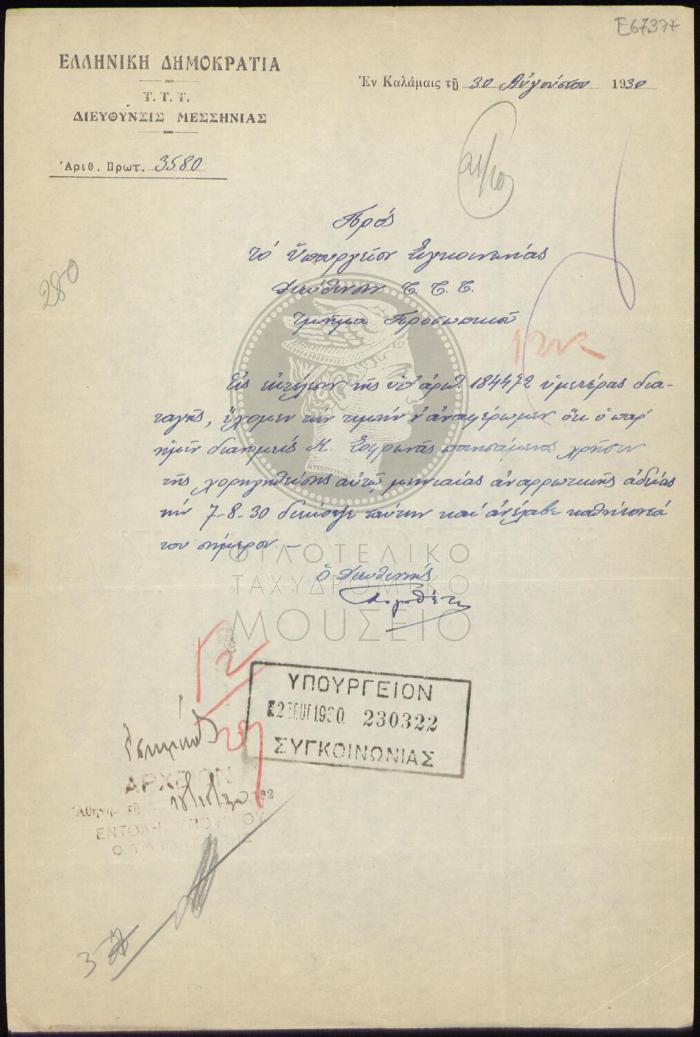 Ε67377
ΕΛΛΗΝΙΚΗ ΔΗΜΟΚΡΑΤΙΑ
Τ. Τ. Τ.
ΔΙΕΥΘΥΝΣΙΣ ΜΕΣΣΗΝΙΑΣ
Ἀριθ. Πρωτ. 3580
Ἐν Καλάμαις τῇ 30 Αὐγούστου 1930
280
Πρὸς
τὸ Ὑπουργεῖον Συγκοινωνίας
Διεύθυνσιν Τ. Τ. Τ.
Τμῆμα Προσωπικοῦ
Εἰς ἐκτέλεσιν τῆς ὑπ' ἀριθ. 184472 ὑμετέρας δια-
ταγῆς, ἔχομεν τὴν τιμὴν ν' ἀναφέρωμεν ὅτι ὁ παρ'
ἡμῖν διανομεὺς Κ. ποιησάμενος χρῆσιν
τῆς χορηγηθείσης αὐτῷ μηνιαίας ἀναρρωτικῆς ἀδείας
τὴν 7-8-30 διέκοψε ταύτην καὶ ἀνέλαβε καθήκοντά
του σήμερον.-
Ὁ Διευθυντὴς
ΦΙΛΟΤΕΛΙΚΟ
ΤΑΧΥΔΡΟΜΙΚΟ
ΜΟΥΣΕΙΟ
ΥΠΟΥΡΓΕΙΟΝ
1930. 230322
ΣΥΓΚΟΙΝΩΝΙΑΣ
ΑΡΧΕΙΟΝ
Ἀθῆναι τῇ 192
ΕΝΤΟΛΗ ΥΠΟΥΡΓΟΥ
3